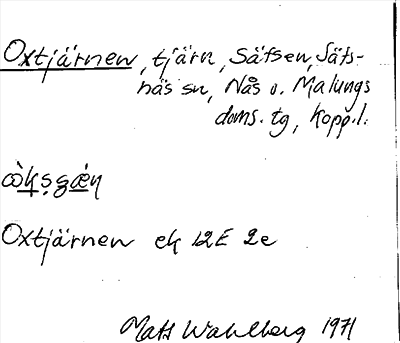 Oxtjärnen, tjärn, Säfsen, Säfs-
näs sn, Nås o. Malungs
doms. tg, Kopp. l.
Oxtjärnen ek 12E 2e
Mats Wahlberg 1971